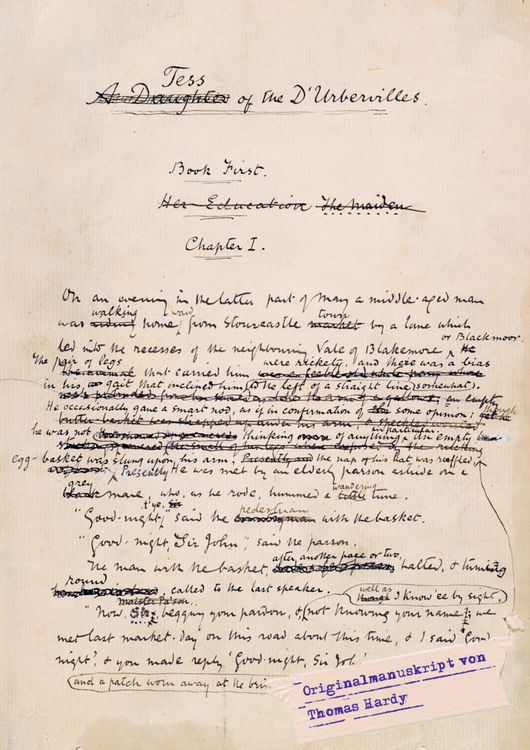 Tess
A Daughter of the D'Urbervilles.
Book First.
Her Education The Maiden
Chapter I.
On an evening in the latter part of May a middle-aged man
walking ward town
was riding home from Stourcastle market by a lane which
or Blackmoor.
led into the recesses of the neighbouring Vale of Blakemore He
The pair of legs were rickety, and there was a bias
the animal that carried him
in his gait that inclined him to the left of a straight line somewhat.
an empty
He occasionally gave a smart nod, as if in confirmation of some opinion; though
in particular.
he was not thinking of anything An empty
egg-basket was slung upon his arm, Presently the nap of his hat was ruffled,
Presently He was met by an elderly parson astride on a
grey wandering
black mare, who, as he rode, hummed a tune.
t'ye, pedestrian
"Good-night said the with the basket.
"Good-night, Sir John," said the parson.
after another pace or two,
The man with the basket, halted, & turning
round
called to the last speaker. well as
though I know 'ee by sight,
maister Pa'son,
"Now, Sir, begging your pardon, & not knowing your name; we
met last market-day on this road about this time, & I said 'Good-
night', & you made reply 'Good-night, Sir Joh
and a patch worn away at the brim
Originalmanuskript von
Thomas Hardy